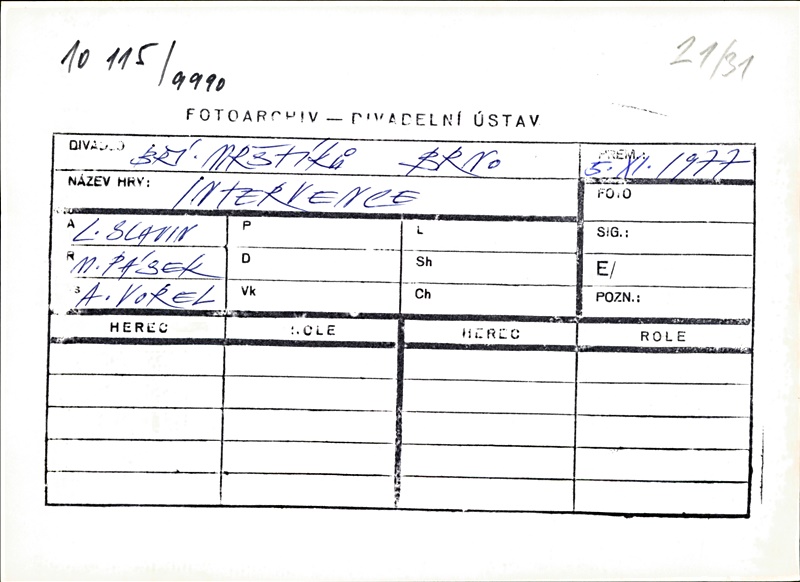 10 115/9990
21/31
FOTOARCHIV — DIVADELNÍ ÚSTAV
DIVADLO BŘÍ. MRŠTÍKŮ BRNO PREM.: 5. XI. 1977
NÁZEV HRY: INTERVENCE FOTO
A L. SLAVIN P L SIG.:
R M. PÁSEK D Sh E/
S A. VOREL Vk Ch POZN.:
HEREC ROLE HEREC ROLE